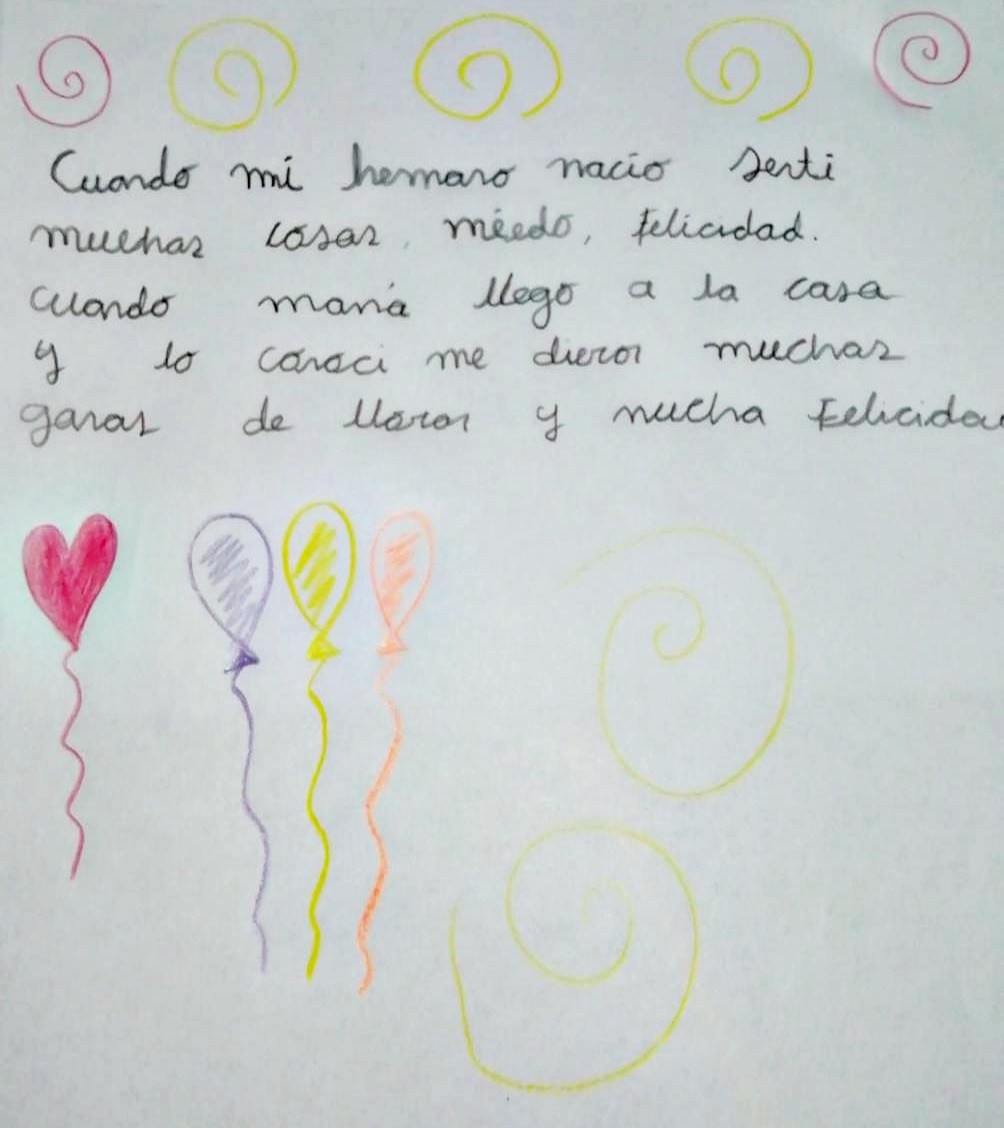 Cuando mi hermano nacio senti
muchas cosas, miedo, felicidad.
cuando mamá llego a la casa
y lo conoci me dieron muchas
ganas de lloror y mucha felicida